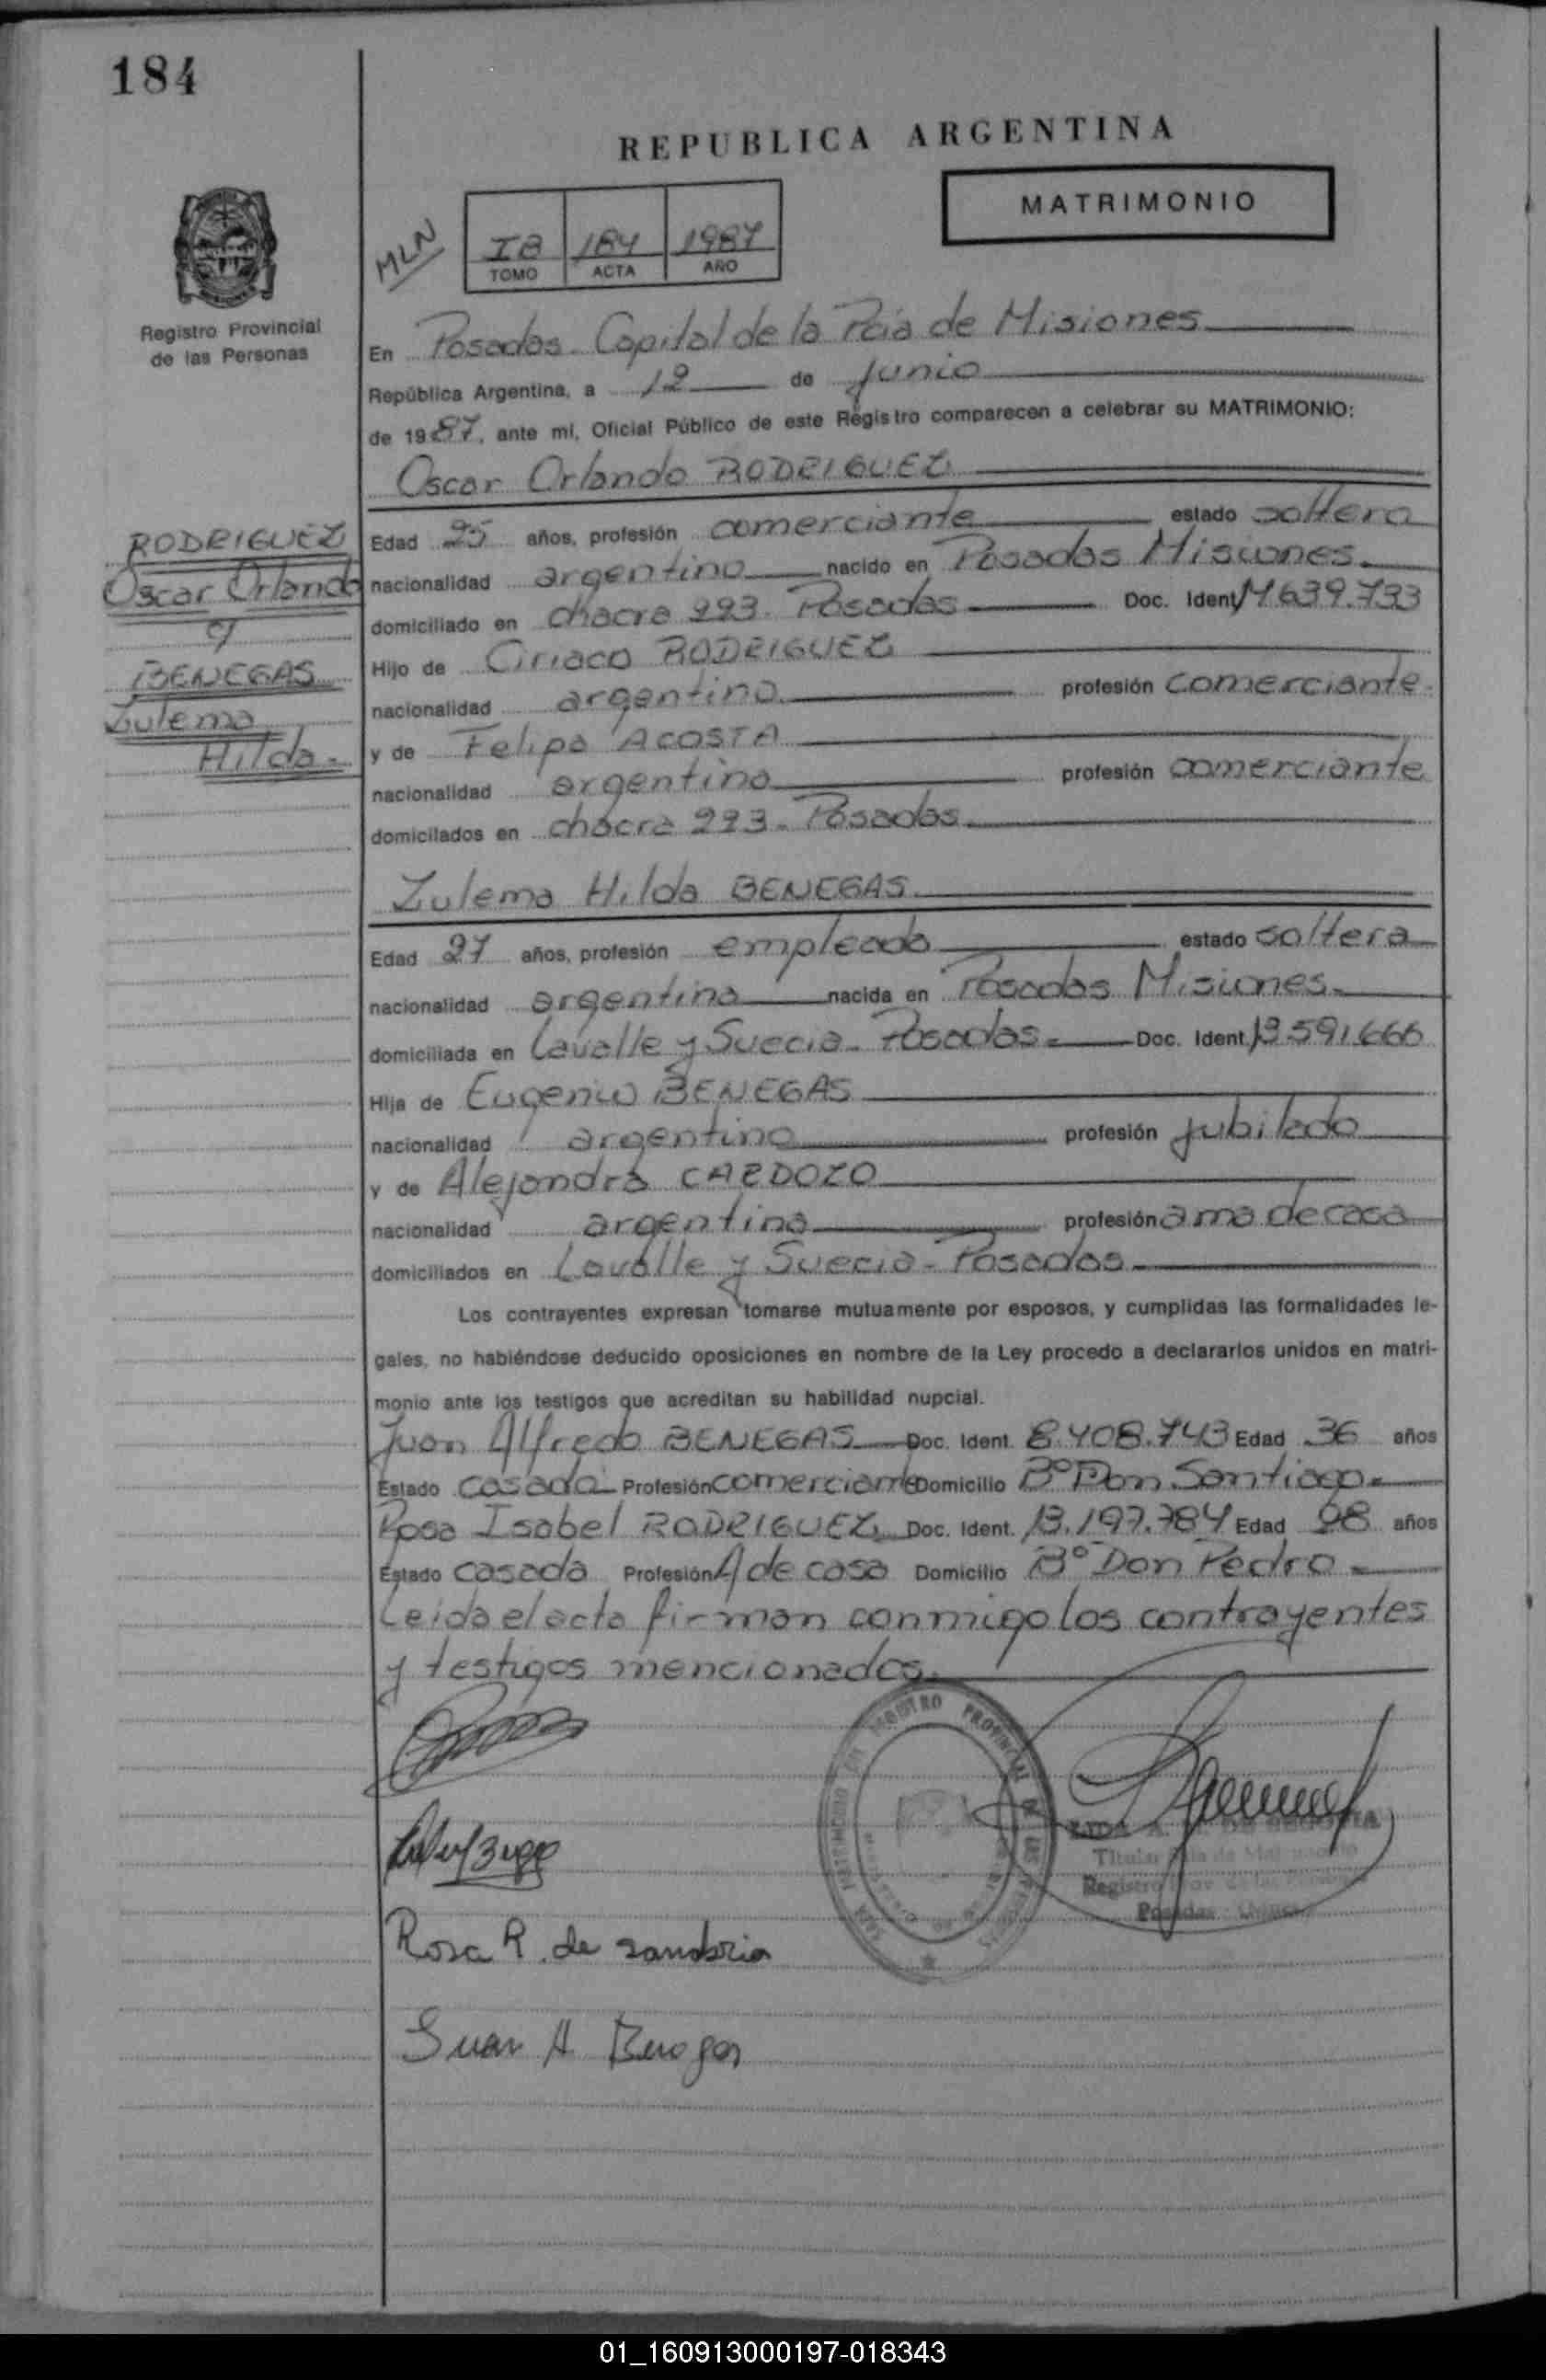 184
REPUBLICA ARGENTINA
MATRIMONIO
MLN
IB 184 1987
TOMO ACTA AÑO
Registro Provincial
de las Personas
En Posadas Capital de la Pcia de Misiones
República Argentina, a 12 de junio
de 1987, ante mí, Oficial Público de este Registro comparecen a celebrar su MATRIMONIO:
Oscar Orlando RODRIGUEZ
RODRIGUEZ
Oscar Orlando
c/
BENEGAS
Zulema
Hilda.-
Edad 25 años, profesión comerciante estado soltero
nacionalidad argentino nacido en Posadas Misiones.
domiciliado en chacra 223. Posadas Doc. Ident 14639.733
Hijo de Ciriaco RODRIGUEZ
nacionalidad argentino profesión comerciante.
y de Felipa ACOSTA
nacionalidad argentina profesión comerciante
domiciliados en chacra 223. Posadas.
Zulema Hilda BENEGAS.
Edad 27 años, profesión empleada estado soltera
nacionalidad argentina nacida en Posadas Misiones.
domiciliada en Lavalle y Suecia. Posadas. Doc. Ident. 13.591.666
Hija de Eugenio BENEGAS
nacionalidad argentino profesión jubilado
y de Alejandra CARDOZO
nacionalidad argentina profesión ama de casa
domiciliados en Lavalle y Suecia - Posadas
Los contrayentes expresan tomarse mutuamente por esposos, y cumplidas las formalidades le-
gales, no habiéndose deducido oposiciones en nombre de la Ley procedo a declararlos unidos en matri-
monio ante los testigos que acreditan su habilidad nupcial.
Juan Alfredo BENEGAS Doc. Ident. 8.408.743 Edad 36 años
Estado casado Profesión comerciante Domicilio Bº Don Santiago.
Rosa Isabel RODRIGUEZ Doc. Ident. 13.197.784 Edad 28 años
Estado casada Profesión A de casa Domicilio Bº Don Pedro
Leída el acta firman conmigo los contrayentes
y testigos mencionados.
REGISTRO PROVINCIAL DE LAS PERSONAS
Registro Prov. de las Personas
Posadas
Rosa R. de sanabria
Juan A
01_160913000197-018343